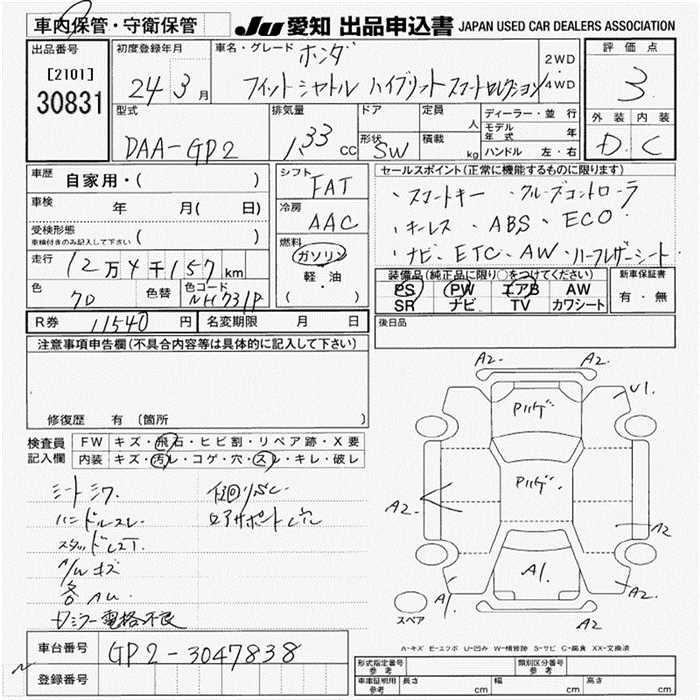 車内保管・守衛保管 JU 愛知 出品申込書 JAPAN USED CAR DEALERS ASSOCIATION
出品番号 初度登録年月 車名・グレード ホンダ 2WD ・ 4WD 評価点
[2101]
30831
24年3月 フィットシャトル ハイブリッド スマートセレクション 3
型式 DAA-GP2 排気量 1.33 CC ドア 形状 SW 定員 人 積載 kg ディーラー・並行 モデル年式 年 ハンドル 左・右 外装 内装
D C
車歴 自家用・( ) シフト FAT セールスポイント(正常に機能するものに限ります)
車検 年 月( 日) 冷房 AAC ・スマートキー ・クルーズコントローラ
受検形態 ( ) ・キーレス ・ABS ・ECO
車検付きのみ記入して下さい 燃料 ガソリン 軽・油 ( ・ ) ・ナビ・ETC・AW・ハーフレザーシート
走行 12万4千157km 装備品(純正品に限り○をつけてください) 新車保証書
色 70 色替 色コード NH731P PS PW エアB AW 有・無
SR ナビ TV カワシート
R券 11540円 名変期限 月 日 後日品
注意事項申告欄(不具合内容等は具体的に記入して下さい)
修復歴 有(箇所 )
検査員記入欄 FW キズ・飛石・ヒビ割・リペア跡・X要
内装 キズ・汚レ・コゲ・穴・スレ・キレ・破レ
シートシワ
ハンドルスレ
スタッドレスT.
A/Wキズ
各AU.
ドミラー電格不良
A2 A2.
U1.
Pルーフ
Pルーフ
A2-
A2
A1.
A1 A2
A2.
スペア
車台番号 GP2-3047838
登録番号
A-キズ E-エクボ U-凹み W-補修跡 S-サビ C-腐食 XX-交換済
形式指定番号 参考 類別区分番号 参考
車庫証明用 参考 長さ cm 幅 cm 高さ cm